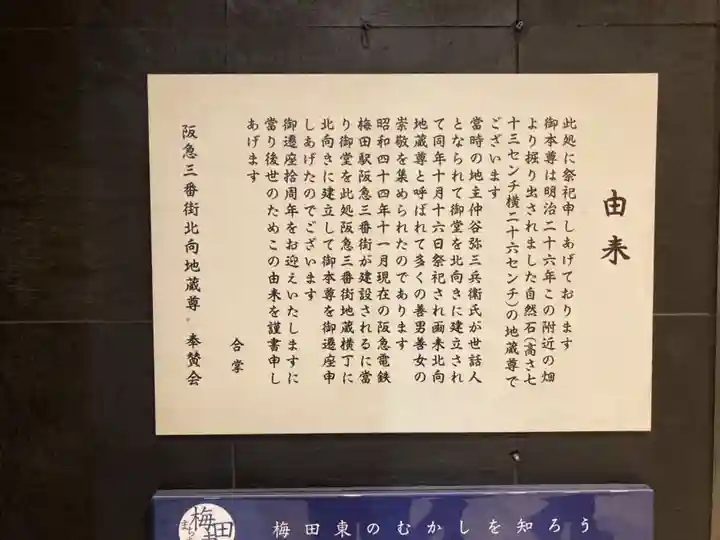 由来
此処に祭祀申しあげております
御本尊は明治二十六年この附近の畑
より掘り出されました自然石(高さ七
十三センチ横二十六センチ)の地蔵尊で
ございます
當時の地主仲谷弥三兵衛氏が世話人
となられて御堂を北向きに建立され
て同年十月十六日祭祀され画来北向
地蔵尊と呼ばれて多くの善男善女の
崇敬を集められたのであります
昭和四十四年十一月現在の阪急電鉄
梅田駅阪急三番街が建設されるに當
り御堂を此処阪急三番街地蔵横丁に
北向きに建立して御本尊を御遷座申
しあげたのでございます
御遷座拾周年をお迎えいたしますに
當り後世のためこの由来を謹書申し
あげます
合掌
阪急三番街北向地蔵尊。奉賛会
梅田
梅田東のむかしを知ろう